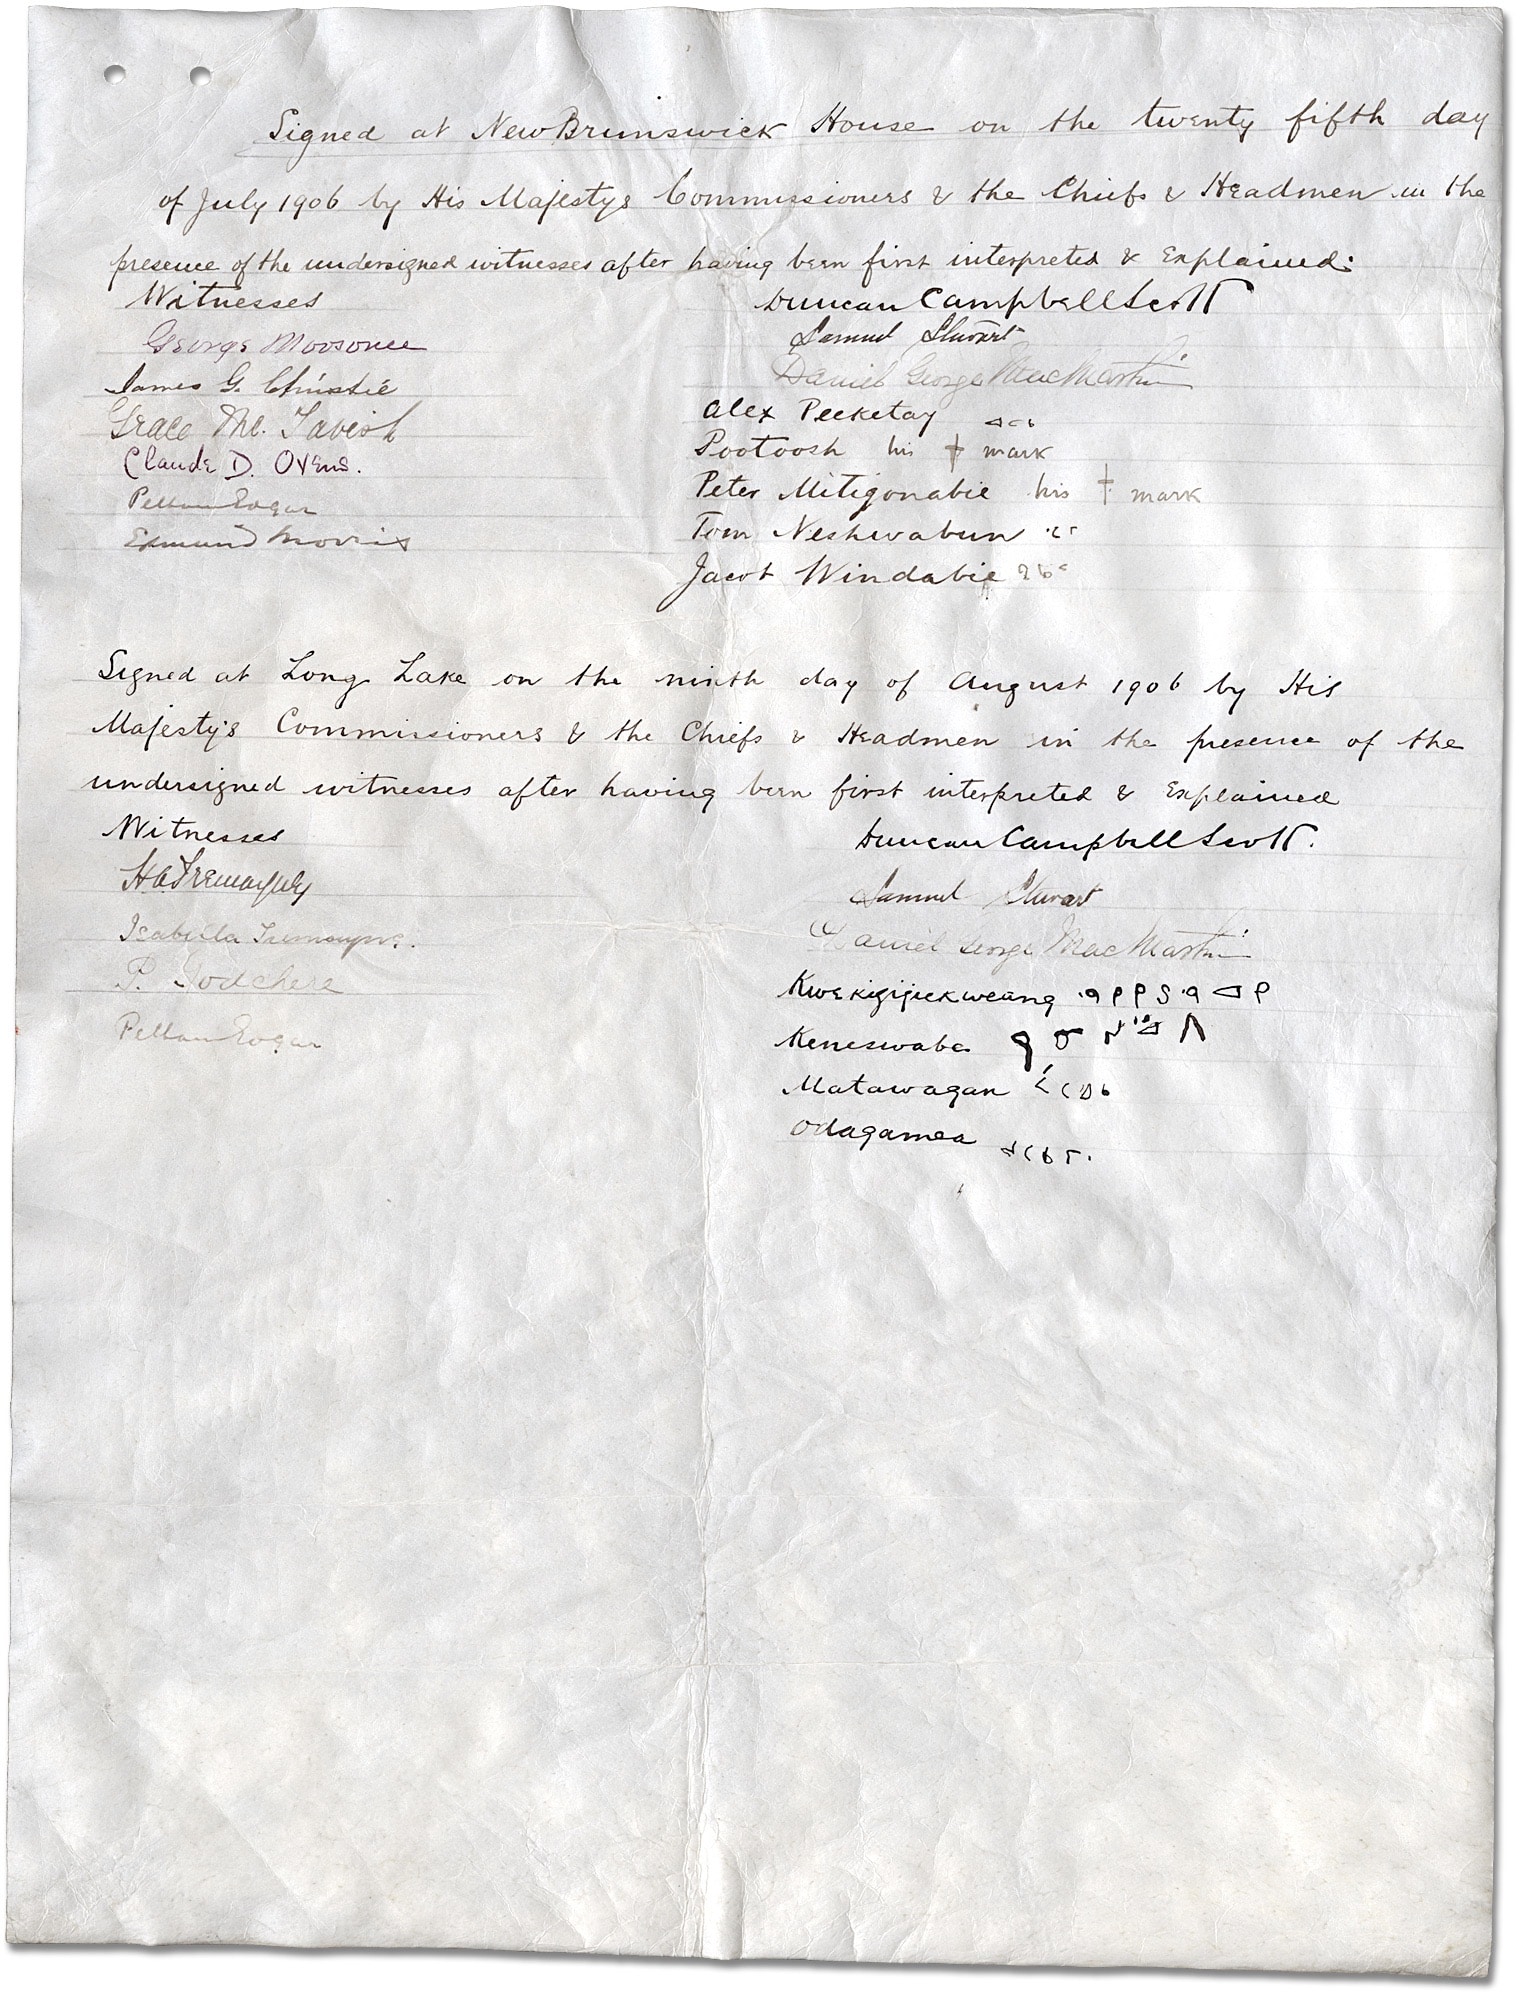 Signed at New Brunswick House on the twenty fifth day
of July 1906 by His Majestys Commissioners & the Chiefs & Headmen in the
presence of the undersigned witnesses after having been first interpreted & Explained:
Witnesses
George Moosonee
James G. Christie
Grace Mc. Tavish
Claude D. Ovens.
Pelham Edgar
Edmund Morris
Duncan Campbell Scott
Samuel Stewart
Daniel George MacMartin
Alex Peeketay
Pootoosh his † mark
Peter Mitigonabie his † mark
Tom Neshwabun
Jacob Windabie
Signed at Long Lake on the ninth day of August 1906 by His
Majesty's Commissioners & the Chiefs & Headmen in the presence of the
undersigned witnesses after having been first interpreted & Explained
Witnesses
Isabella Tremayne.
P. Godchere
Pelham Edgar
Duncan Campbell Scott.
Samuel Stewart
Daniel George MacMartin
Kwekizijickweang ᑫᑭᑭᔕᑫᐊᑭ
Keneswabe
Matawagan
Odagamea